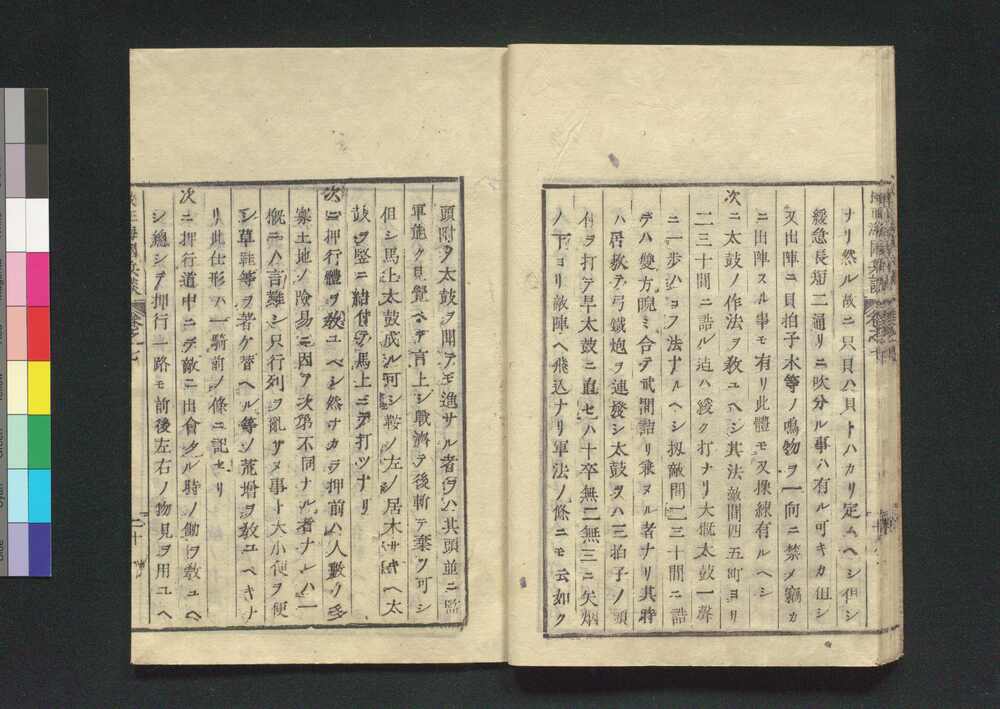 ナリ然ル故ニ只貝ハ貝トハカリ定ムヘシ但シ
緩急長短二通リニ吹分ル事ハ有ル可キカ但シ
又出陣ニ貝拍子木等ノ鳴物ヲ一向ニ禁メ竊カ
ニ出陣スル事モ有リ此體モ又操練有ルヘシ
次ニ太鼓ノ作法ヲ敎ユヘシ其法敵間四五町ヨリ
二三十間ニ詰ル迠ハ緩ク打ナリ大概太鼓一聲
ニ一歩ハコフ法ナルヘシ扨敵間二三十間ニ詰
テハ雙方睨ミ合テ貳間詰リ兼ヌル者ナリ其時
ハ居敷テ弓鐵炮ヲ連發シ太鼓ヲハ三拍子ノ頭
付ヲ打テ早太鼓ニ直セハ士卒無二無三ニ矢烟
ノ下ヨリ敵陣ヘ飛込ナリ軍法ノ條ニモ云如ク
頭附ヲ太鼓ヲ聞テモ進サル者ヲハ其頭並ニ監
軍能ク見覺ヘテ言上シ戰濟テ後斬テ棄ツ可シ
但シ馬上太鼓成ル可シ鞍ノ左ノ居木サキヘ太
鼓ヲ竪ニ結付テ馬上ニテ打ツナリ
次ニ押行體ヲ敎ユヘシ然ナカラ押前ハ人數ク多
寡土地ノ險易ニ因ヲ次第不同ナル者ナレハ一
槪ニハ言難シ只行列ヲ亂サヌ事ト大小便ヲ便
シ草鞋等ヲ著ケ替ヘル等ノ荒増ヲ敎ユヘキナ
リ此仕形ハ一騎前ノ條ニ記セリ
次ニ押行道中ニテ敵ニ出會タル時ノ働ヲ敎ユヘ
シ總シテ押行一路モ前後左右ノ物見ヲ用ユヘ